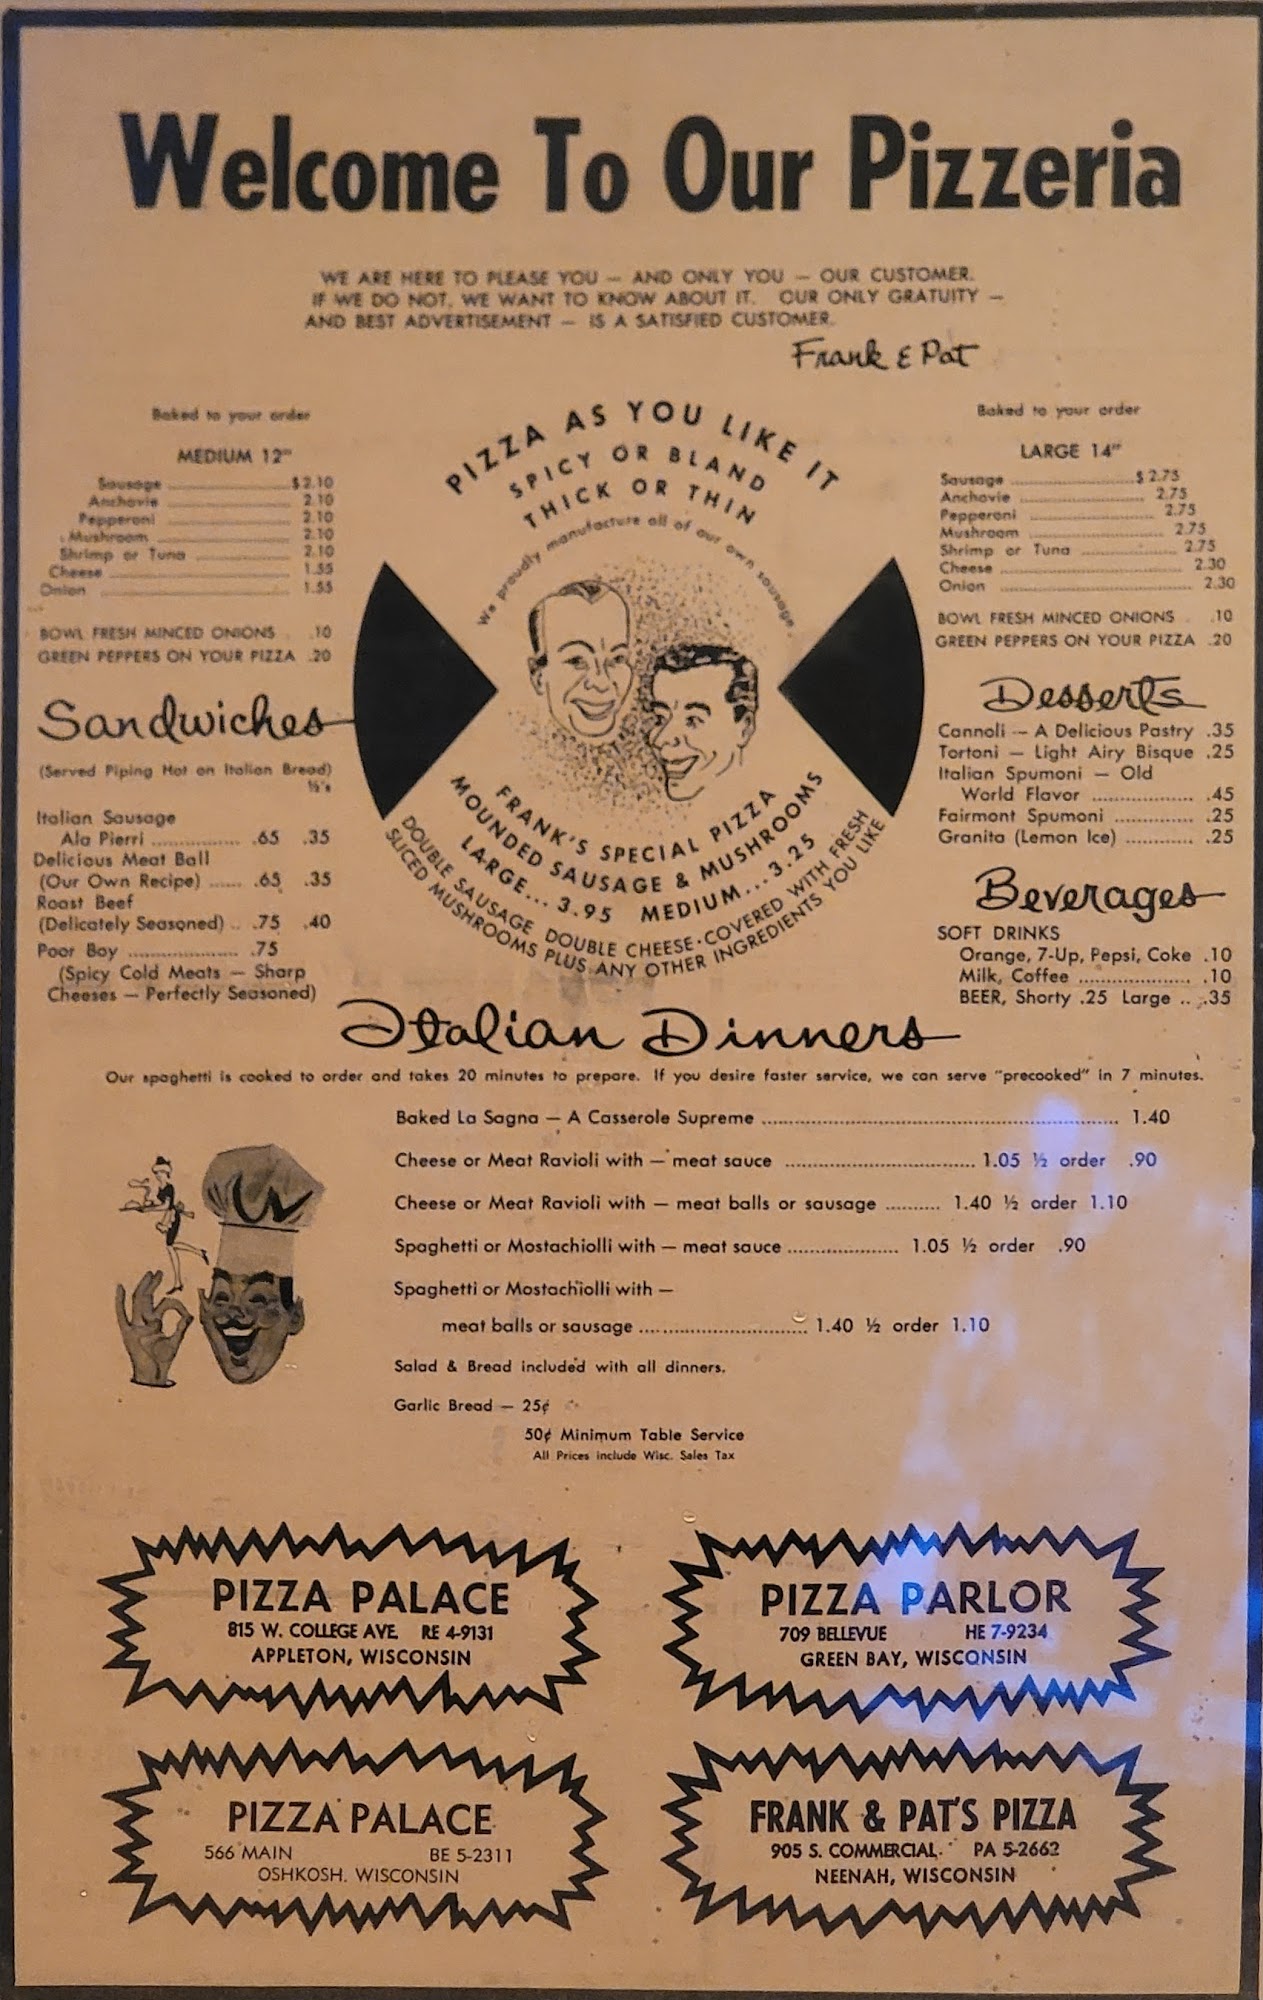 Welcome To Our Pizzeria
WE ARE HERE TO PLEASE YOU — AND ONLY YOU — OUR CUSTOMER.
IF WE DO NOT, WE WANT TO KNOW ABOUT IT. OUR ONLY GRATUITY —
AND BEST ADVERTISEMENT — IS A SATISFIED CUSTOMER.
Frank & Pat
Baked to your order
MEDIUM 12"
Sausage $2.10
Anchovie 2.10
Pepperoni 2.10
Mushroom 2.10
Shrimp or Tuna 2.10
Cheese 1.55
Onion 1.55
BOWL FRESH MINCED ONIONS .10
GREEN PEPPERS ON YOUR PIZZA .20
PIZZA AS YOU LIKE IT
SPICY OR BLAND
THICK OR THIN
We proudly manufacture all of our own sausage.
FRANK'S SPECIAL PIZZA
MOUNDED SAUSAGE & MUSHROOMS
LARGE... 3.95 MEDIUM... 3.25
DOUBLE SAUSAGE DOUBLE CHEESE · COVERED WITH FRESH
SLICED MUSHROOMS PLUS ANY OTHER INGREDIENTS YOU LIKE
Baked to your order
LARGE 14"
Sausage $2.75
Anchovie 2.75
Pepperoni 2.75
Mushroom 2.75
Shrimp or Tuna 2.75
Cheese 2.30
Onion 2.30
BOWL FRESH MINCED ONIONS .10
GREEN PEPPERS ON YOUR PIZZA .20
Sandwiches
(Served Piping Hot on Italian Bread)
½'s
Italian Sausage
Ala Pierri .65 .35
Delicious Meat Ball
(Our Own Recipe) .65 .35
Roast Beef
(Delicately Seasoned) .75 .40
Poor Boy .75
(Spicy Cold Meats — Sharp
Cheeses — Perfectly Seasoned)
Desserts
Cannoli — A Delicious Pastry .35
Tortoni — Light Airy Bisque .25
Italian Spumoni — Old
World Flavor .45
Fairmont Spumoni .25
Granita (Lemon Ice) .25
Beverages
SOFT DRINKS
Orange, 7-Up, Pepsi, Coke .10
Milk, Coffee .10
BEER, Shorty .25 Large .. .35
Italian Dinners
Our spaghetti is cooked to order and takes 20 minutes to prepare. If you desire faster service, we can serve "precooked" in 7 minutes.
Baked La Sagna — A Casserole Supreme 1.40
Cheese or Meat Ravioli with — meat sauce 1.05 ½ order .90
Cheese or Meat Ravioli with — meat balls or sausage 1.40 ½ order 1.10
Spaghetti or Mostachiolli with — meat sauce 1.05 ½ order .90
Spaghetti or Mostachiolli with —
meat balls or sausage 1.40 ½ order 1.10
Salad & Bread included with all dinners.
Garlic Bread — 25¢
50¢ Minimum Table Service
All Prices include Wisc. Sales Tax
PIZZA PALACE
815 W. COLLEGE AVE. RE 4-9131
APPLETON, WISCONSIN
PIZZA PARLOR
709 BELLEVUE HE 7-9234
GREEN BAY, WISCONSIN
PIZZA PALACE
566 MAIN BE 5-2311
OSHKOSH, WISCONSIN
FRANK & PAT'S PIZZA
905 S. COMMERCIAL PA 5-2662
NEENAH, WISCONSIN